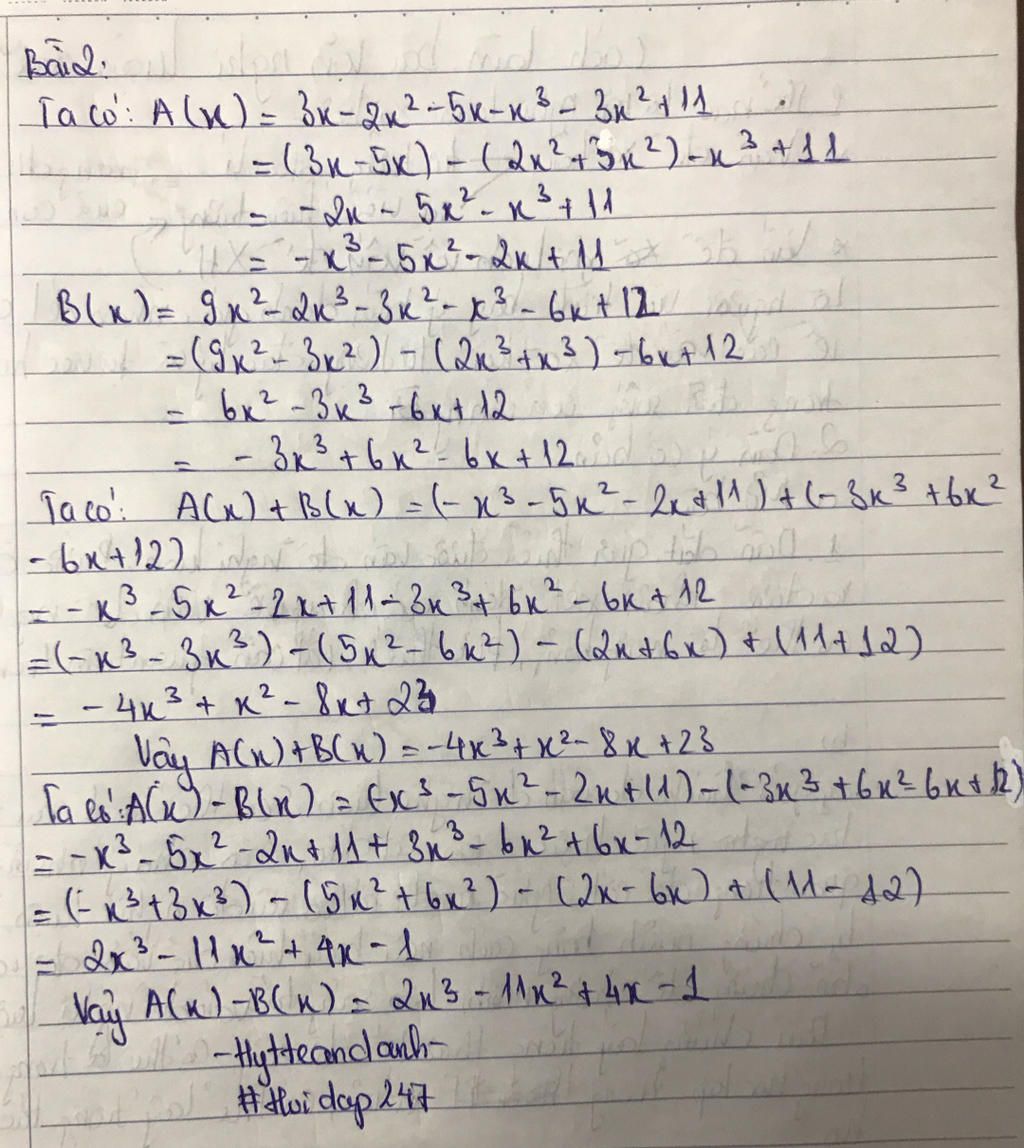 Bài 2:
Ta có: A(x) = 3x - 2x² - 5x - x³ - 3x² + 11
= (3x - 5x) - (2x² + 3x²) - x³ + 11
= - 2x - 5x² - x³ + 11
= - x³ - 5x² - 2x + 11
B(x) = 9x² - 2x³ - 3x² - x³ - 6x + 12
= (9x² - 3x²) - (2x³ + x³) - 6x + 12
= 6x² - 3x³ - 6x + 12
= - 3x³ + 6x² - 6x + 12
Ta có: A(x) + B(x) = (- x³ - 5x² - 2x + 11) + (- 3x³ + 6x²
- 6x + 12)
= - x³ - 5x² - 2x + 11 - 3x³ + 6x² - 6x + 12
= (- x³ - 3x³) - (5x² - 6x²) - (2x + 6x) + (11 + 12)
= - 4x³ + x² - 8x + 23
Vậy A(x) + B(x) = - 4x³ + x² - 8x + 23
Ta có: A(x) - B(x) = (-x³ - 5x² - 2x + 11) - (- 3x³ + 6x² - 6x + 12)
= - x³ - 5x² - 2x + 11 + 3x³ - 6x² + 6x - 12
= (- x³ + 3x³) - (5x² + 6x²) - (2x - 6x) + (11 - 12)
= 2x³ - 11x² + 4x - 1
Vậy A(x) - B(x) = 2x³ - 11x² + 4x - 1
- HytTeandanh -
# Hoidap247